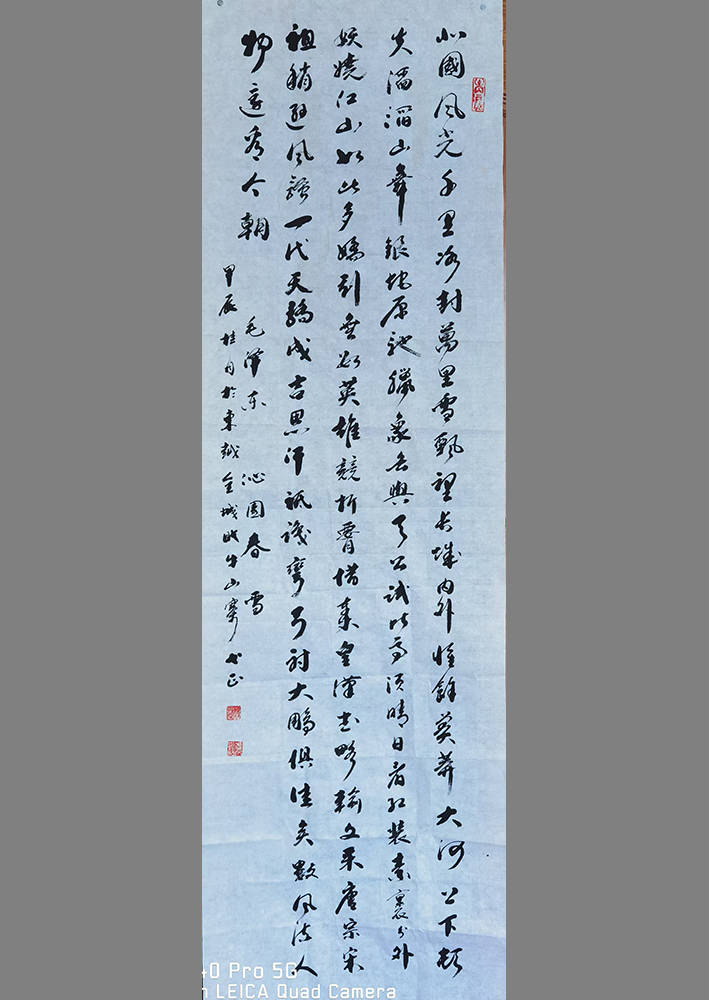 北國風光千里冰封萬里雪飄望長城內外惟餘莽莽大河上下頓
失滔滔山舞銀蛇原馳臘象欲與天公試比高須晴日看紅裝素裹分外
妖嬈江山如此多嬌引無數英雄競折腰惜秦皇漢武略輸文采唐宗宋
祖稍遜風騷一代天驕成吉思汗祇識彎弓射大鵰俱往矣數風流人
物還看今朝
毛澤東 沁園春 雪
甲辰桂月於東越金城牛山寨
40 Pro 5G
LEICA Quad Camera